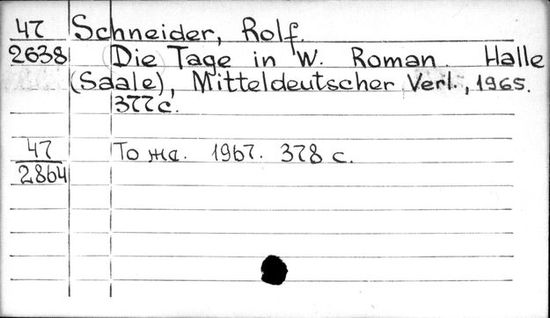 47 Schneider, Rolf.
2638 Die Tage in W. Roman. Halle
(Saale), Mitteldeutscher Verl., 1965.
377 c.
47 То же. 1967. 378 с.
2864